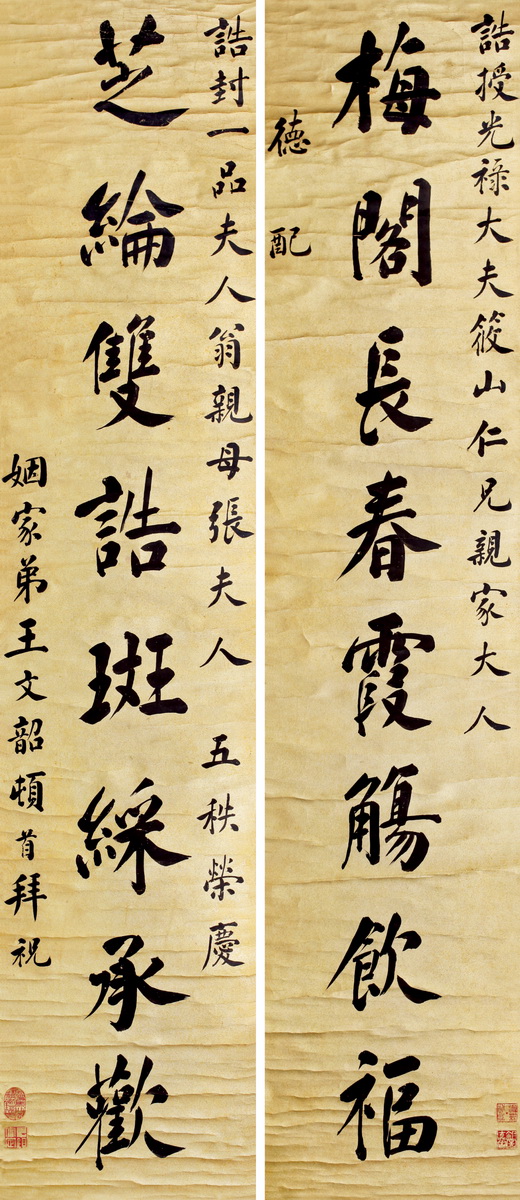 誥授光祿大夫筱山仁兄親家大人
梅閣長春霞觴飲福
德配
誥封一品夫人翁親母張夫人 五秩榮慶
芝綸雙誥斑綵承歡
姻家弟王文韶頓首拜祝